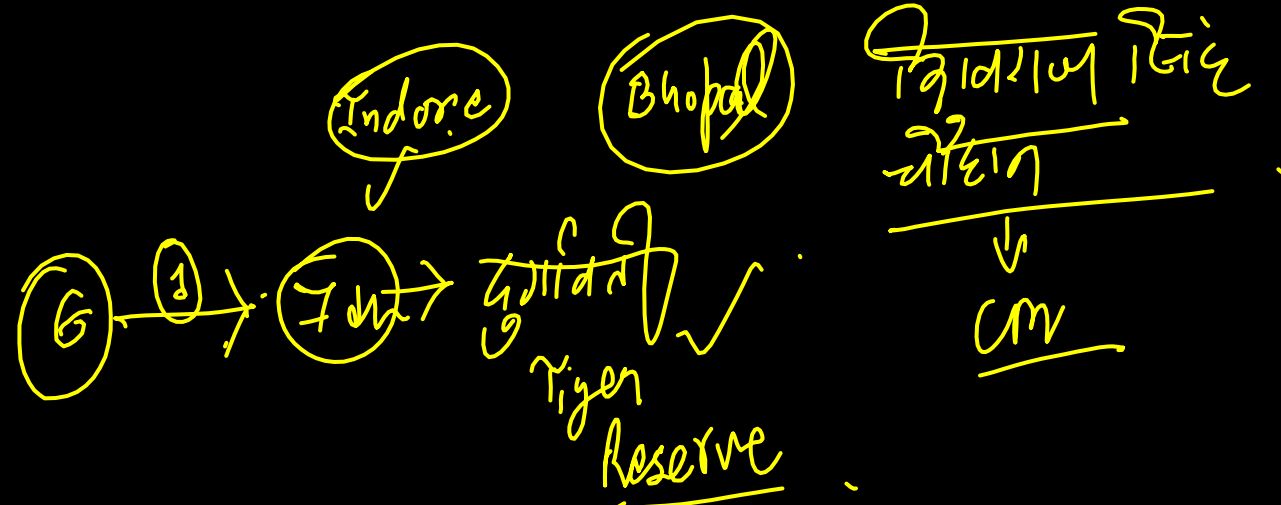 Indore Bhopal शिवराज सिंह
चौहान
6 1 7वा दुर्गावती
CM
Tiger
Reserve